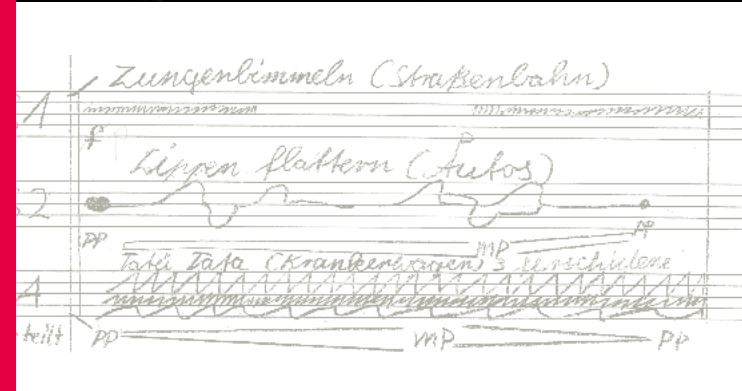 Zungenbimmeln (Straßenbahn)
1
f
p
Lippen flattern (Autos)
2
pp mp pp
Tatü Tata (Krankenwagen) 3 verschiedene
A
teilt pp mp pp